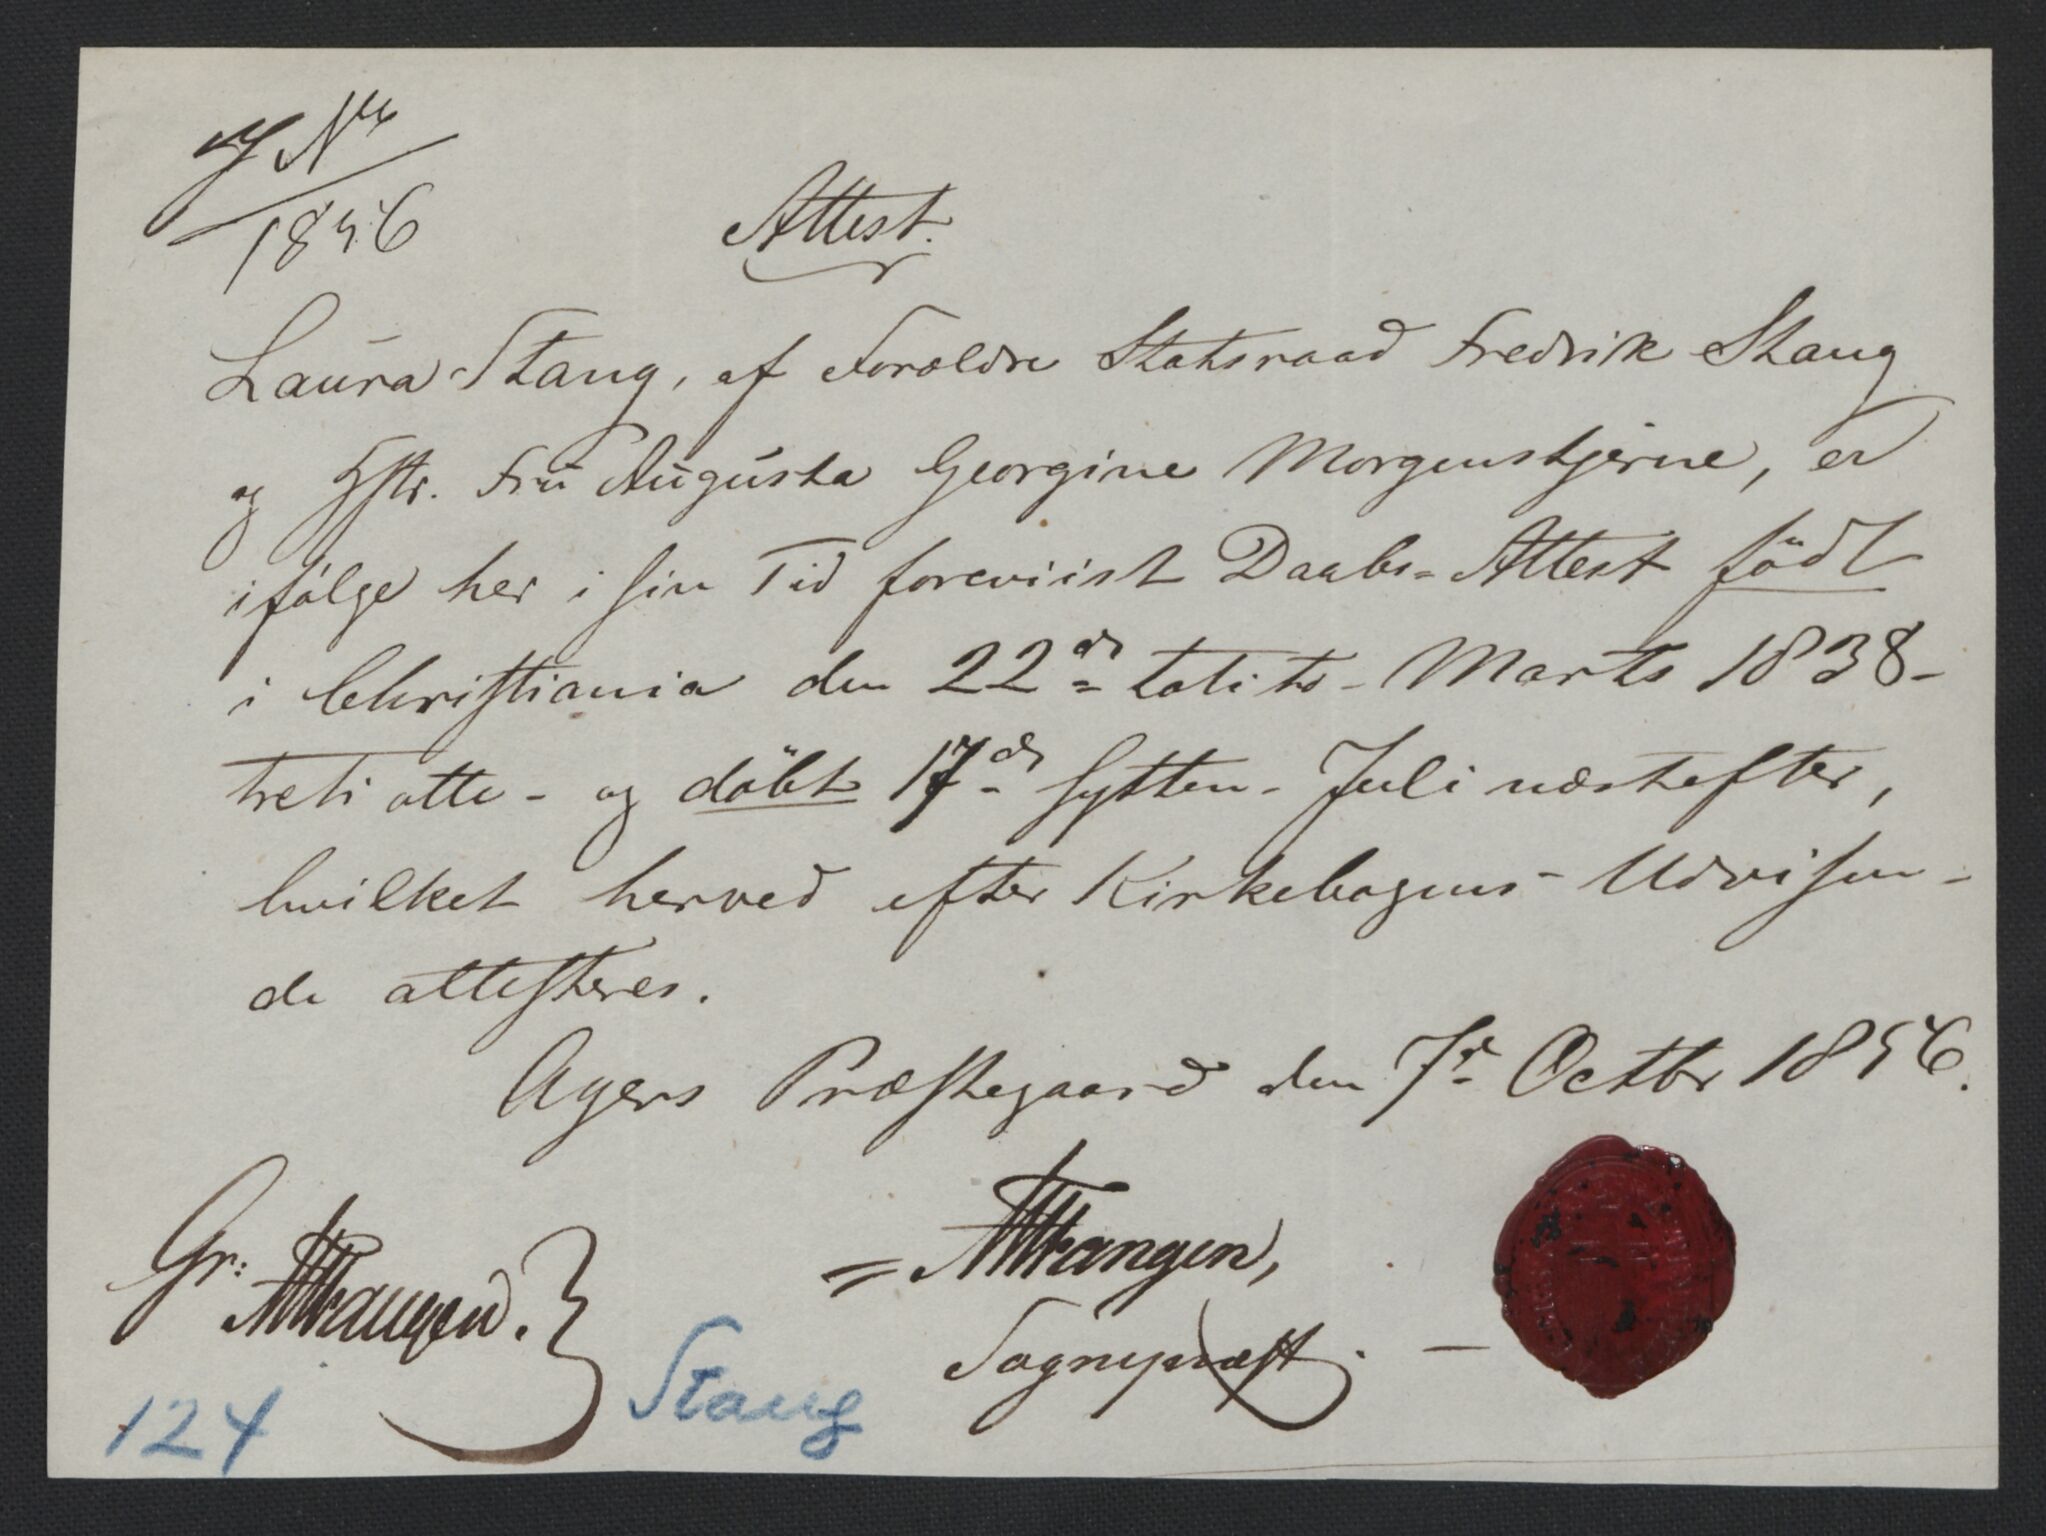 1856
Attest.
Laura Stang, af Forældre Statsraad Fredrik Stang
og Hstr. Fru Augusta Georgine Morgenstjerne, er
ifølge her i sin Tid foreviist Daabs-Attest födt
i Christiania den 22de toti to - Marts 1838 -
treti otte - og döbt 17de sytten - Juli næstefter,
hvilket herved efter Kirkebogens Udvisen-
de attesteres.
Agers Præstegaard den 7de Octbr 1856.
Gr:
Sognepræst.
124 Stang